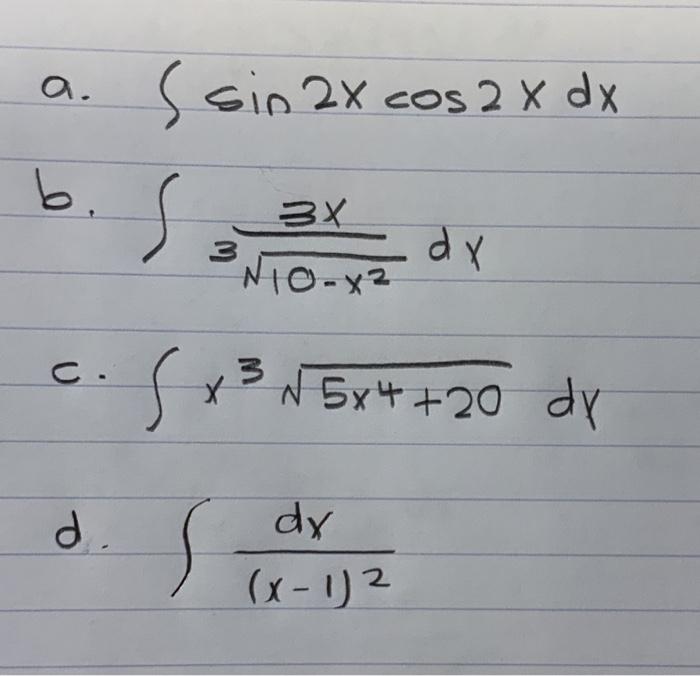 a. ∫ sin 2x cos 2x dx
b. ∫ 3x / ∛(10-x²) dx
c. ∫ x³ √(5x⁴+20) dx
d. ∫ dx / (x-1)²